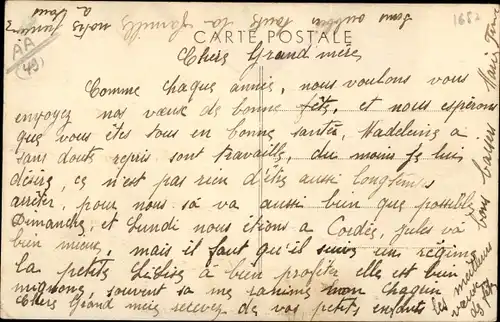 CARTE POSTALE
1652
AA
(49)
Chers Grand'mère
Comme chaque année, nous voulons vous
envoyez nos vœux de bonne fête, et nous espérons
que vous êtes tous en bonne santés, Madeleine a
sans doute repris sont travaille, du moins je lui
désire, ce n'est pas rien d'êtes aussi longtemps
arrêter, pour nous sà va aussi bien que possible
Dimanche, et lundi nous étions a Cordés, Jules và
bien mieux, mais il faut qu'il suive un régime
la petite a bien profiter elle est bien
mignone, souvent sa me ranime mon chagrin
Chers Grand mère recevez de vos petits enfants
les meilleurs
vœux de fête
bons baisers
toute la famille